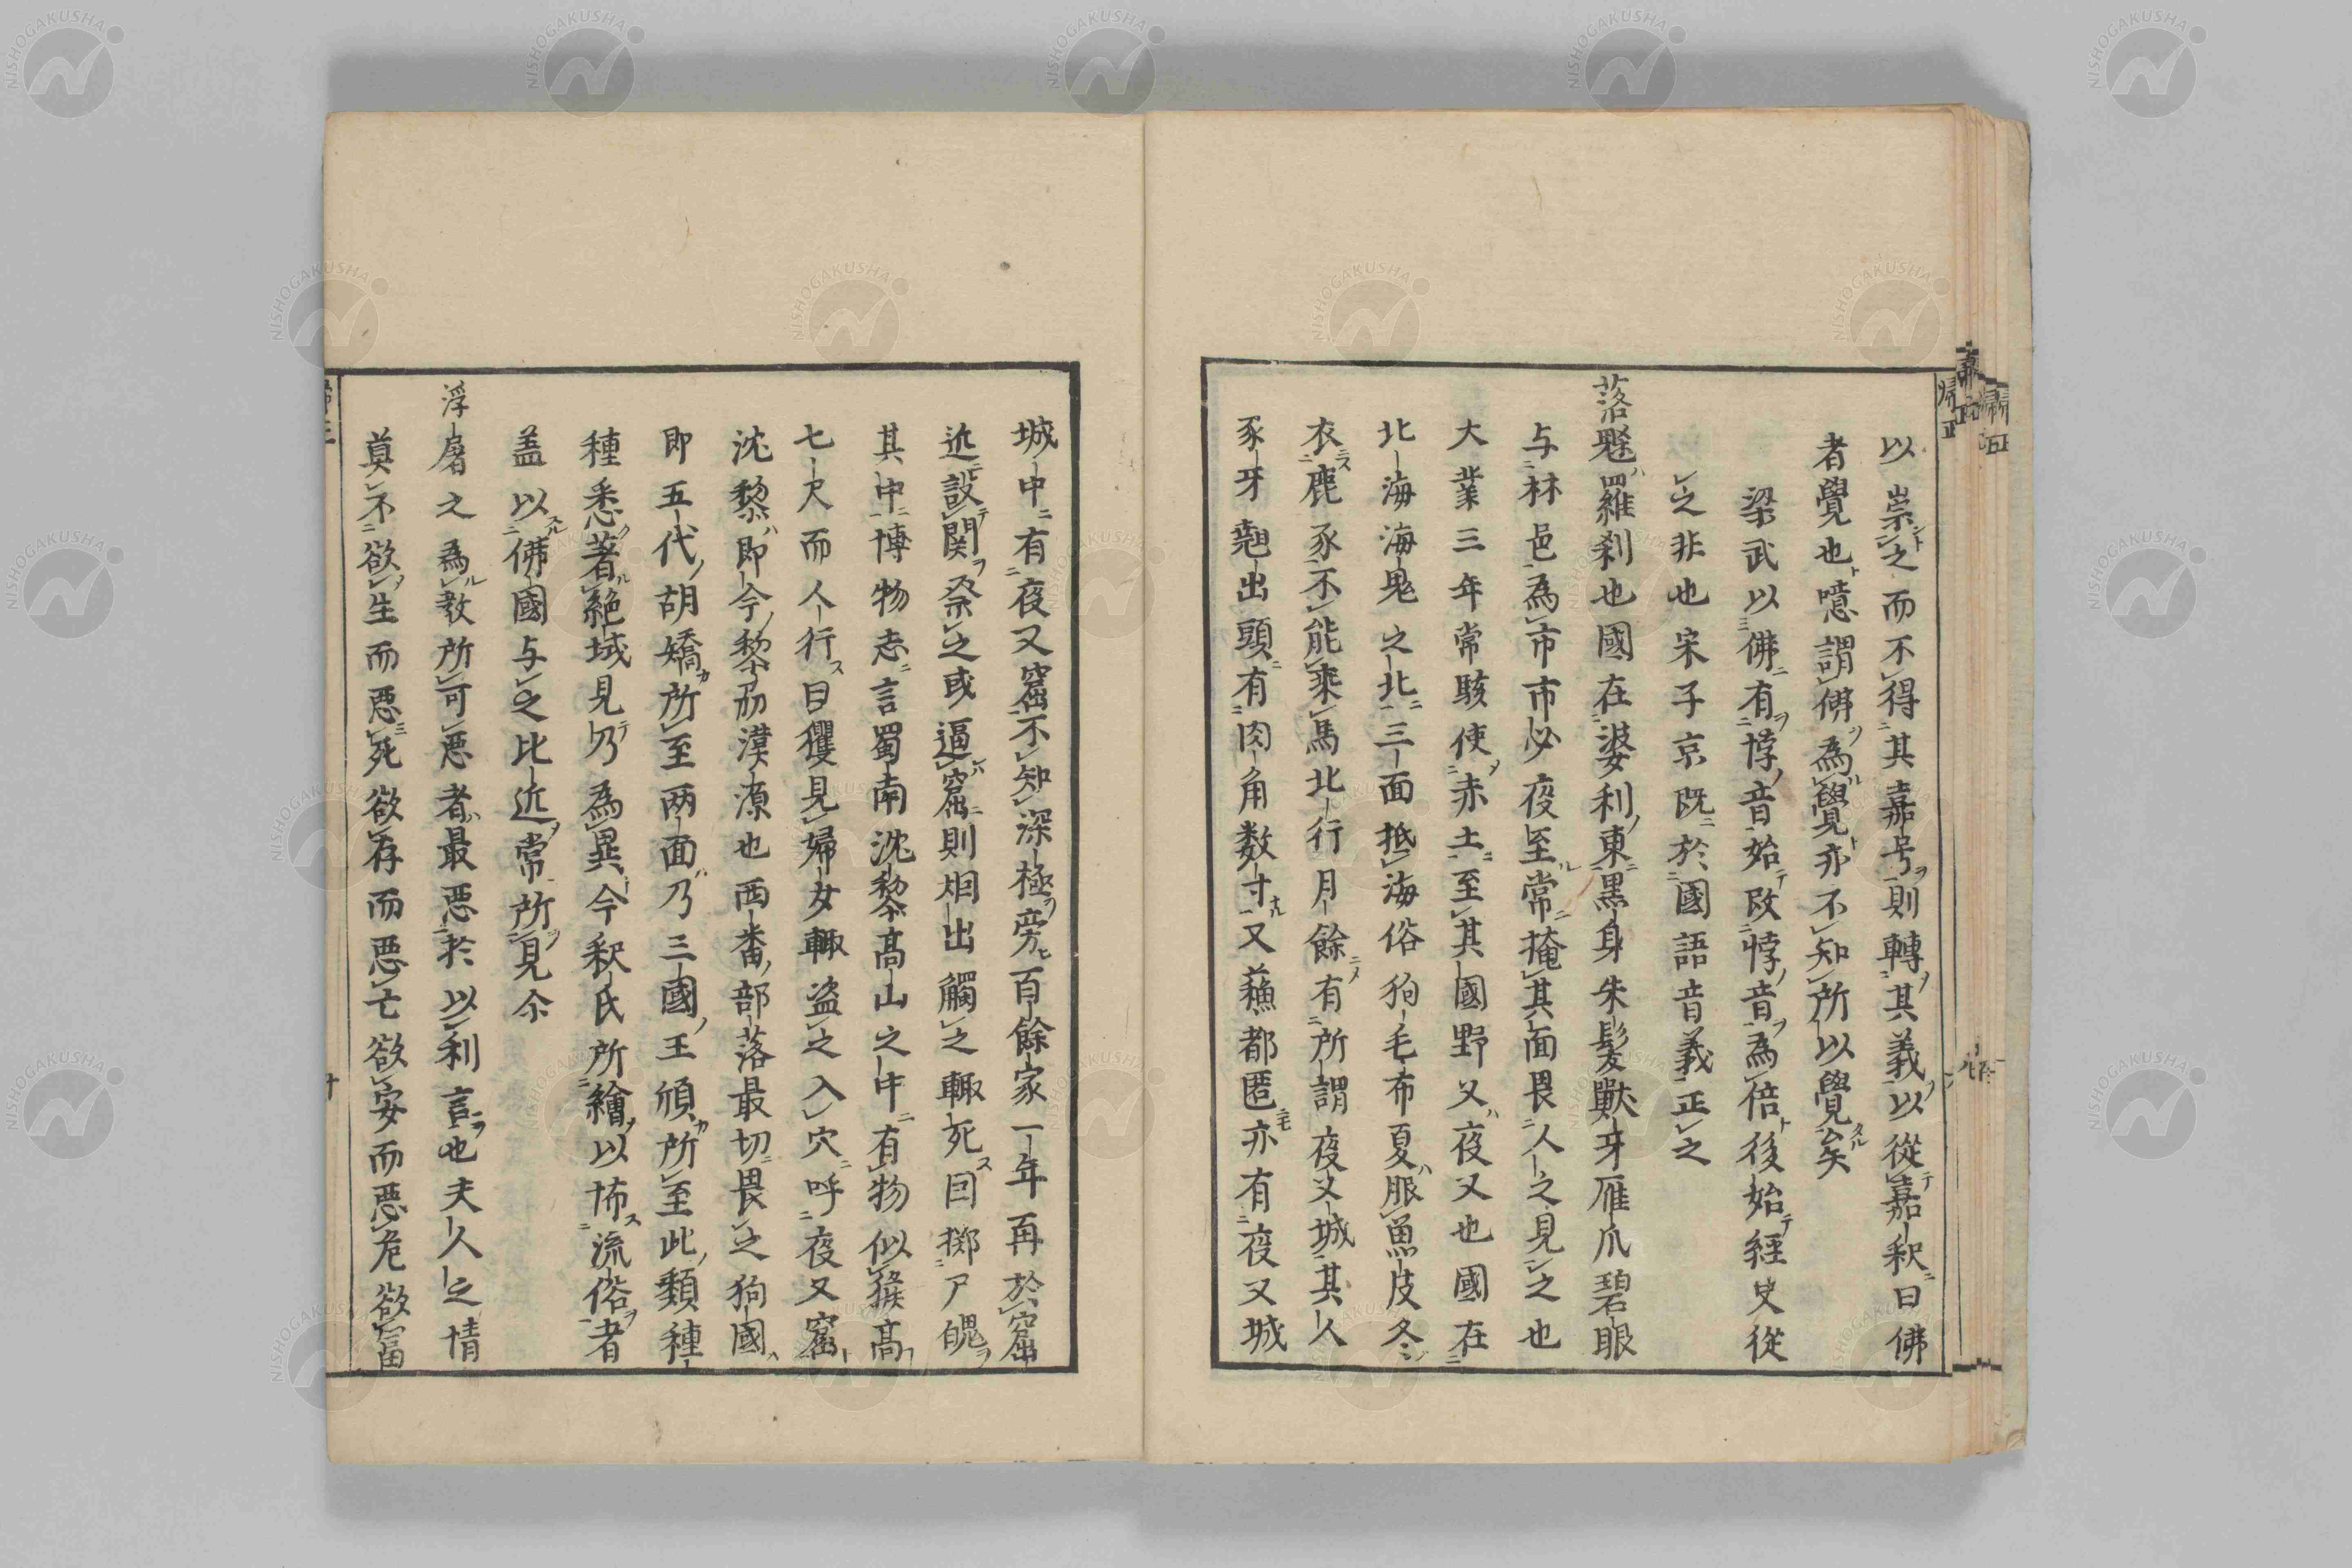 以崇之而不得其嘉号則轉其義以從嘉釈曰佛
者覺也噫謂佛為覺亦不知所以覺矣
梁武以佛有悖音始改悖音為倍後始經史從
之非也宋子京既於國語音義正之
落𩲸羅刹也國在婆利東黒身朱髮獣牙雁爪碧眼
与林邑為市市必夜至常掩其面畏人之見之也
大業三年常駭使赤土至其國野叉夜叉也國在
北海海鬼之北三面抵海俗狗毛布夏服魚皮冬
衣鹿豕不能乘馬北行月餘有所謂夜叉城其人
豕牙翹出頭有肉角数寸又蘓都匿亦有夜叉城
城中有夜叉窟不知深極旁百餘家一年再於窟
近設関祭之或逼窟則烟出觸之輙死因擲尸
其中博物志言蜀南沈黎高山之中有物似猴高
七尺而人行曰玃見婦女輙盗之入穴呼夜叉窟
沈黎即今黎刕漠源也西番部落最切畏之狗國
即五代胡嬌所至两面乃三國王頎所至此類種
種悉著絶域見乃為異今釈氏所繪以怖流俗者
盖以佛國与之比近常所見尒
浮屠之為教所可悪者最悪於以利言也夫人之情
莫不欲生而悪死欲存而悪亡欲安而悪危欲富
帰正